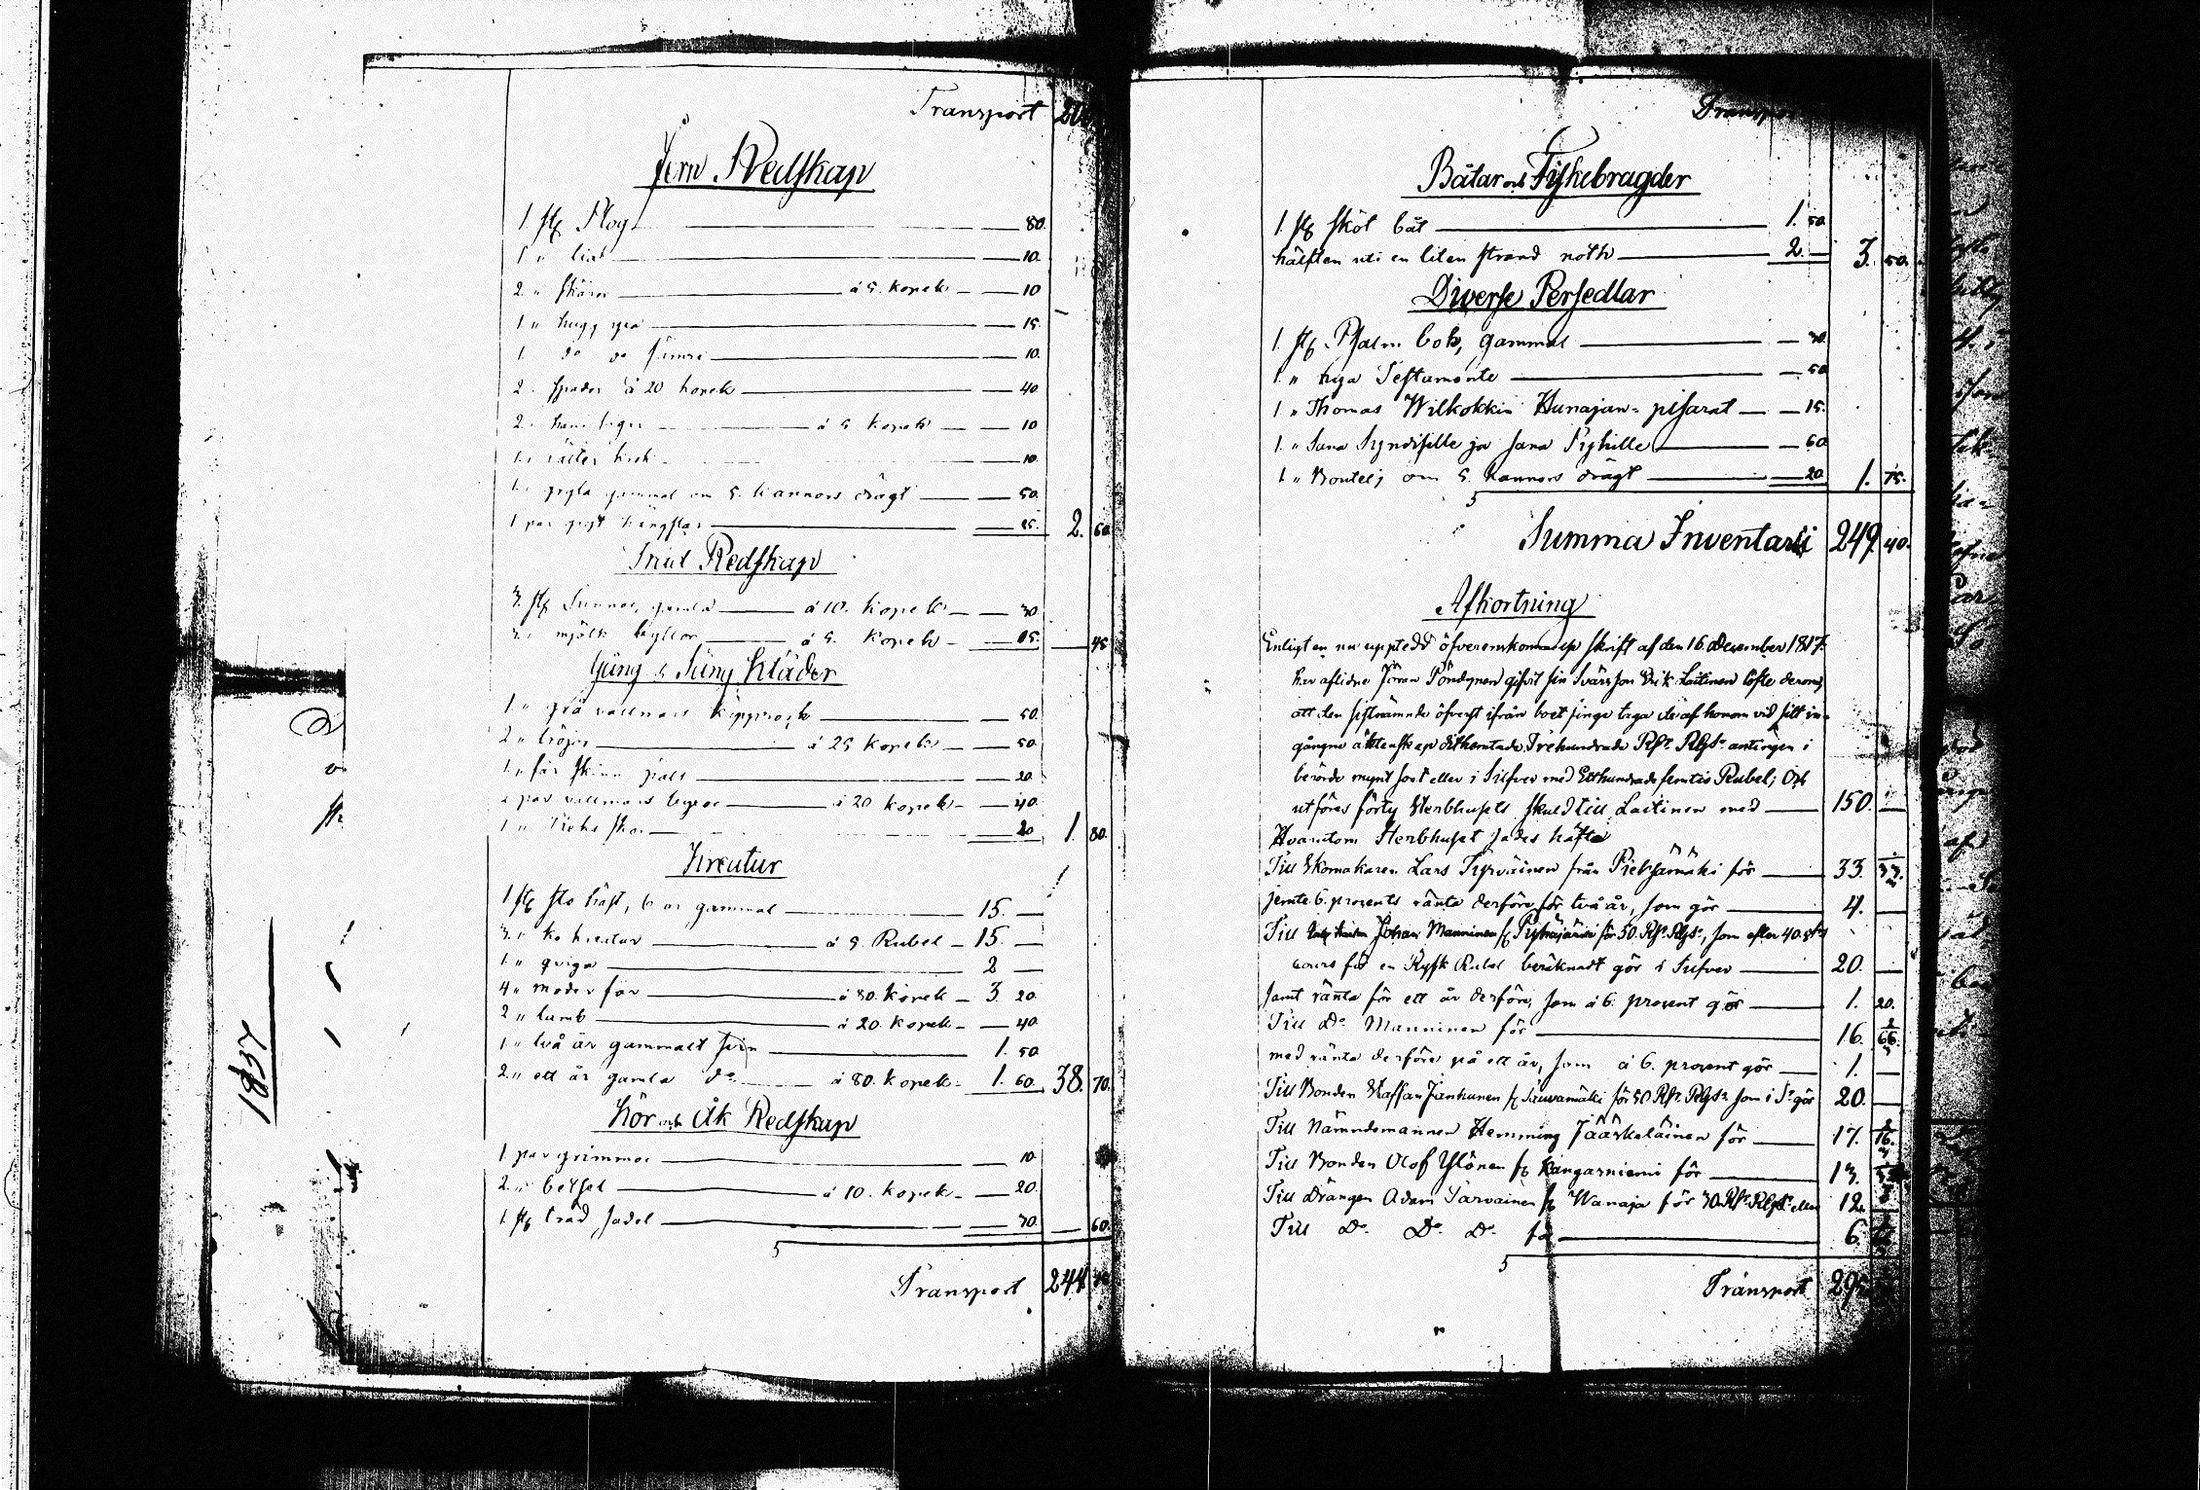 1837
Transport
Jern Redskap
1 st: Plog 80.
1 " lia 10.
2 " skäror à 5. kopek 10
1 " hugg yxa 15.
1. do do sämre 10.
2. spader à 20 kopek 40
2. à 5 kopek 10
1. 10.
1. gryta gammal om 5. kannors drägt 50.
1 par 25. 2. 60.
Träd Redskap
3. st: Tunnor, gamla à 10. kopek 30.
3. mjölk byttor à 5. kopek 15. 45
Gång & Säng Kläder
1 " grå vallmars kapprock 50.
2 " tröjor à 25 kopek 50.
1 " får skinn päls 20.
2 par vallmars byxor à 20 kopek 40.
1 " skor 20 1. 80.
Kreatur
1 st: sto häst, 6 år gammal 15.
3. " ko kreatur à 5. Rubel 15.
1. " qviga 2
4 " moder får à 80. kopek 3. 20.
2 " lamb à 20. kopek 40.
1. " två år gammalt svin 1. 50
2. " ett år gamla do à 80. kopek 1. 60. 38. 70.
Kör och Åk Redskap
1 par grimmor 10
2. " betsel à 10. kopek 20.
1. st: träd sadel 30. 60.
Transport 244.
Transport
Båtar och Fiskebragder
1. st: sköt båt 1. 50.
hälften uti en liten strand noth 2. 3. 50.
Diverse Persedlar
1. st: Psalm bok, gammal 30.
1. " nya Testamente 50
1 " Thomas Wilkokkin Hunajan-pisarat 15.
1. " Sana Syndisille ja sana Pyhille 60
1. " Boutelj om 5. kannors drägt 20. 1. 75.
Summa Inventarii 249. 40.
Afkortning
Enligt en nu uppteed öfverenskommelse skrift af den 16. December 1817.
har aflidne Jöran Pöndynen gifvit sin Svärson Erik Laitinen löfte derom,
att den sistnämnde öfverst ifrån boet finge taga de af honom vid sitt in-
gångne äktenskap ditkomtade Trehundrade Rsr. Rgs. antingen i
berörde mynt sort eller i Silfver med Etthundrade femtio Rubel; Och
utföres förty Sterbhusets skuld till Laitinen med 150.
Hvarutom Sterbhuset sades häfta
Till Skomakaren Lars Tyrväinen från Pieksämäki för 33.
jemte 6. procents ränta derföre för två år, som gör 4.
Till Johan Manninen f: Pyhäjärvi för 50. Rsr. Rgs., som efter 40. st:s
cours för en Rysk Rubel beräknadt gör i Silfver 20.
samt ränta för ett år derföre, som à 6. procent gör 1. 20.
Till Do Manninen för 16. 66.
med ränta derföre på ett år, som à 6. procent gör 1.
Till Bonden Staffan Janhunen f: Suuvamäki för 50 Rsr. Rgs. som i Sr gör 20.
Till Nämndemannen Hemming Jääskeläinen för 17.
Till Bonden Olof Ylönen f: Kangasniemi för 13.
Till Drängen Adam Tarvainen f: Wanaja för 30. Rsr. Rgs. eller 12.
Till Do. Do. Do. för 6.
Transport